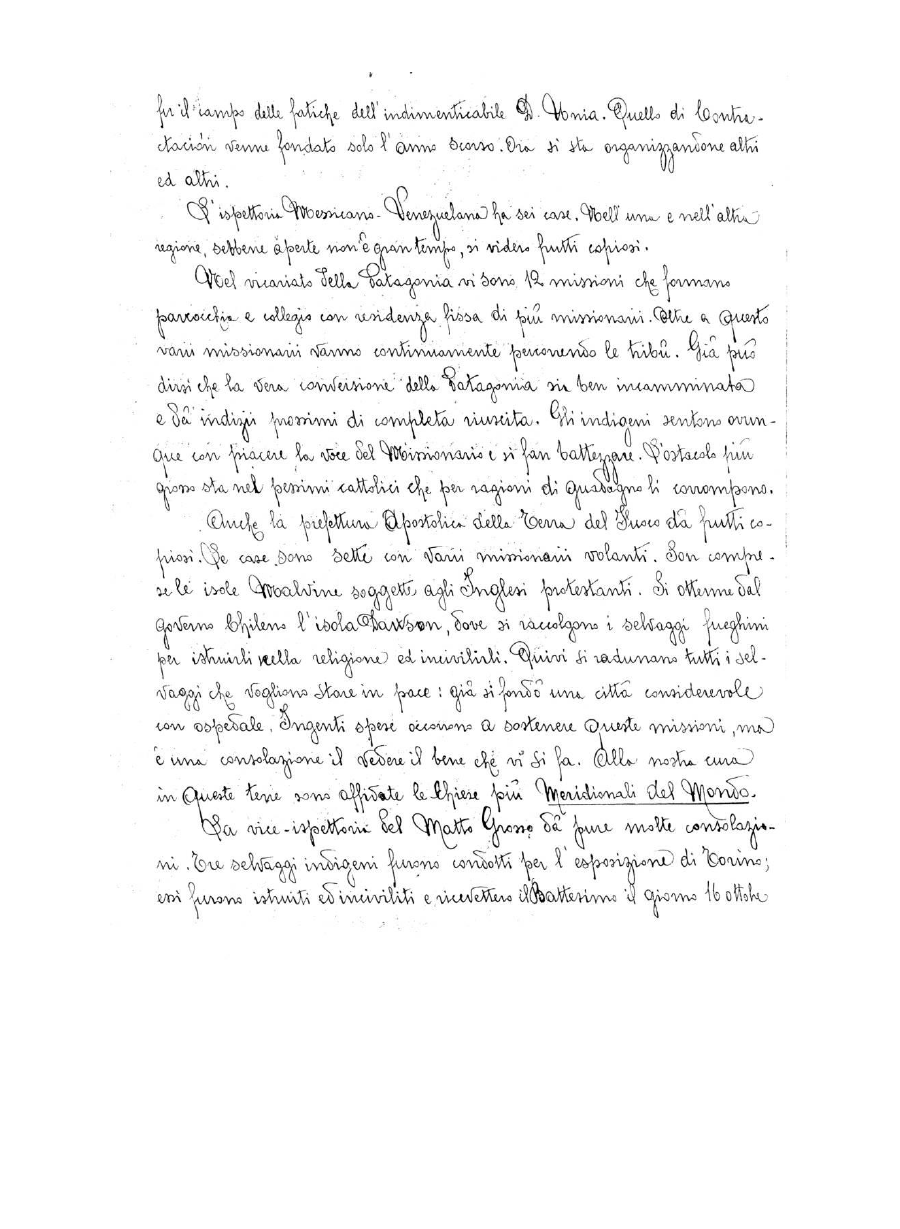 fu il campo delle fatiche dell'indimenticabile D. Unia. Quello di Contra-
ctación venne fondato solo l'anno scorso. Ora si sta organizzandone altri
ed altri.
L'ispettoria Messicano-Venezuelana ha sei case. Nell'una e nell'altra
regione, sebbene aperte non è gran tempo, si videro frutti copiosi.
Nel vicariato della Patagonia vi sono 12 missioni che formano
parrocchia e collegio con residenza fissa di più missionarii. Oltre a questo
varii missionarii vanno continuamente percorrendo le tribù. Già può
dirsi che la vera conversione della Patagonia sia ben incamminata
e dà indizii prossimi di completa riuscita. Gli indigeni sentono ovun-
que con piacere la voce del Missionario e si fan battezzare. L'ostacolo più
grosso sta nel pessimi cattolici che per ragioni di guadagno li corrompono.
Anche la prefettura Apostolica della Terra del Fuoco dà frutti co-
piosi. Le case sono sette con varii missionarii volanti. Son compre-
se le isole Malvine soggette agli Inglesi protestanti. Si ottenne dal
governo Chileno l'isola Dawson, dove si raccolgono i selvaggi fueghini
per istruirli nella religione ed incivilirli. Quivi si radunano tutti i sel-
vaggi che vogliono stare in pace: già si fondò una città considerevole
con ospedale. Ingenti spese occorrono a sostenere queste missioni, ma
è una consolazione il vedere il bene che vi si fa. Alla nostra cura
in queste terre sono affidate le Chiese più Meridionali del Mondo.
La vice-ispettoria del Matto Grosso dà pure molte consolazio-
ni. Tre selvaggi indigeni furono condotti per l'esposizione di Torino;
essi furono istruiti ed inciviliti e ricevettero il Battesimo il giorno 16 ottobre